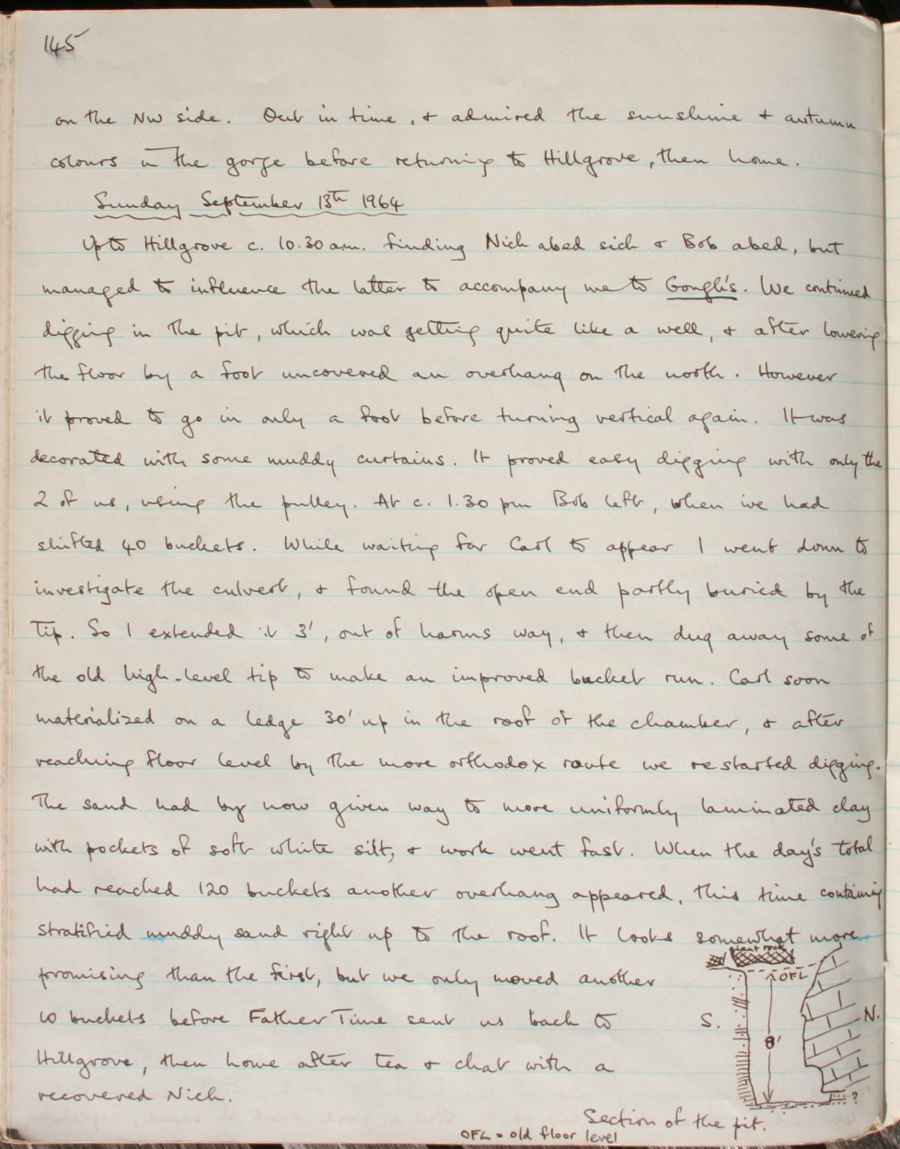 145
on the NW side. Out in time, & admired the sunshine & autumn
colours in the gorge before returning to Hillgrove, then home.
Sunday September 13th 1964
Up to Hillgrove c. 10.30 am. finding Nick abed sick & Bob abed, but
managed to influence the latter to accompany me to Gough's. We continued
digging in the pit, which was getting quite like a well, & after lowering
the floor by a foot uncovered an overhang on the north. However
it proved to go in only a foot before turning vertical again. It was
decorated with some muddy curtains. It proved easy digging with only the
2 of us, using the pulley. At c. 1.30 pm Bob left, when we had
shifted 40 buckets. While waiting for Carl to appear I went down to
investigate the culvert, & found the open end partly buried by the
Tip. So I extended it 3', out of harms way, & then dug away some of
the old high-level tip to make an improved bucket run. Carl soon
materialized on a ledge 30' up in the roof of the chamber, & after
reaching floor level by the more orthodox route we restarted digging.
The sand had by now given way to more uniformly laminated clay
with pockets of soft white silt, & work went fast. When the day's total
had reached 120 buckets another overhang appeared, this time containing
stratified muddy sand right up to the roof. It looks somewhat more
promising than the first, but we only moved another
10 buckets before Father Time sent us back to
Hillgrove, then home after tea & chat with a
recovered Nick.
OFL
S.
N.
8'
?
Section of the pit.
OFL = old floor level